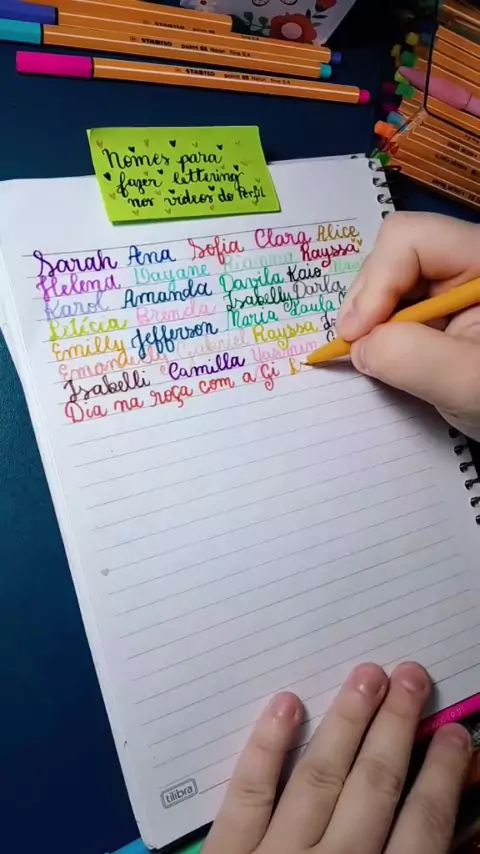 STABILO point 88
STABILO point 88
STABILO point 88
Nomes para
fazer lettering
nos vídeos do Perfil
Sarah Ana Sofia Clara Alice
Helena Dayane Rianna Rayssa
Karol Amanda Davila Kaio
Letícia Brenda Isabelly Darla
Emilly Jefferson Maria Paula
Emanuelly Gabriel Rayssa
Isabelli Camilla Yasmim
Dia na roça com a Gi
tilibra